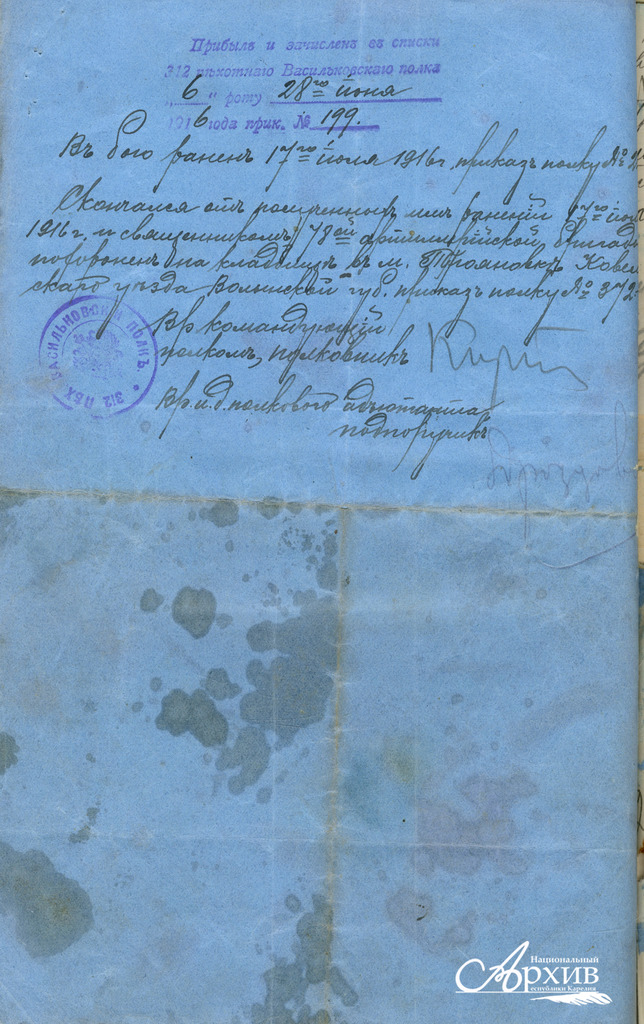 Прибылъ и зачисленъ въ списки
312 пѣхотнаго Васильковскаго полка
„ 6 “ роту 28го іюня
1916 года прик. № 199.
Въ бою раненъ 17го іюля 1916 г. приказъ полку №
Скончался отъ полученныхъ имъ раненій 17го іюля
1916 г. и священникомъ 78ой артиллерійской бригады
похороненъ на кладбищѣ въ м. Трояновкѣ Ковель
скаго уѣзда Волынской губ. приказъ полку № 372
Вр. командующій
полкомъ, полковникъ
Вр. и. д. полкового адъютанта
подпоручикъ
312 ПѢХ. ВАСИЛЬКОВСКІЙ ПОЛКЪ
Национальный
Архив
Республики Карелия